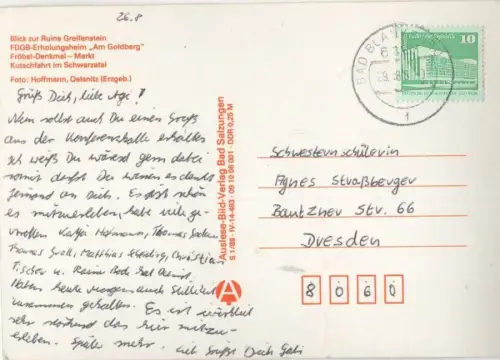 26.8
Blick zur Ruine Greifenstein
FDGB-Erholungsheim „Am Goldberg"
Fröbel-Denkmal – Markt
Kutschfahrt im Schwarzatal
Foto: Hoffmann, Oelsnitz (Erzgeb.)
Grüß Dich, liebe Agi!
Nun sollst auch Du einen Gruß
aus der Konferenzhalle erhalten
ich weiß Du wärst gern dabei
jemand an Dich. Es ist schön
es mitzuerleben, habe viele
Thomas
Matthias Christian
Fischer u.
Haben heute morgen auch Stille Zeit
zusammen gehalten. Es ist wirklich
sehr das hier mitzu-
erleben. Später mehr. Grüßt Dich Gabi
Auslese-Bild-Verlag Bad Salzungen
S 1/88 · IV-14-483 · 09 10 06 001 · DDR 0,25 M
A
BAD BLA
10
Schwesternschülerin
Agnes Straßberger
Bautzner Str. 66
Dresden
8060